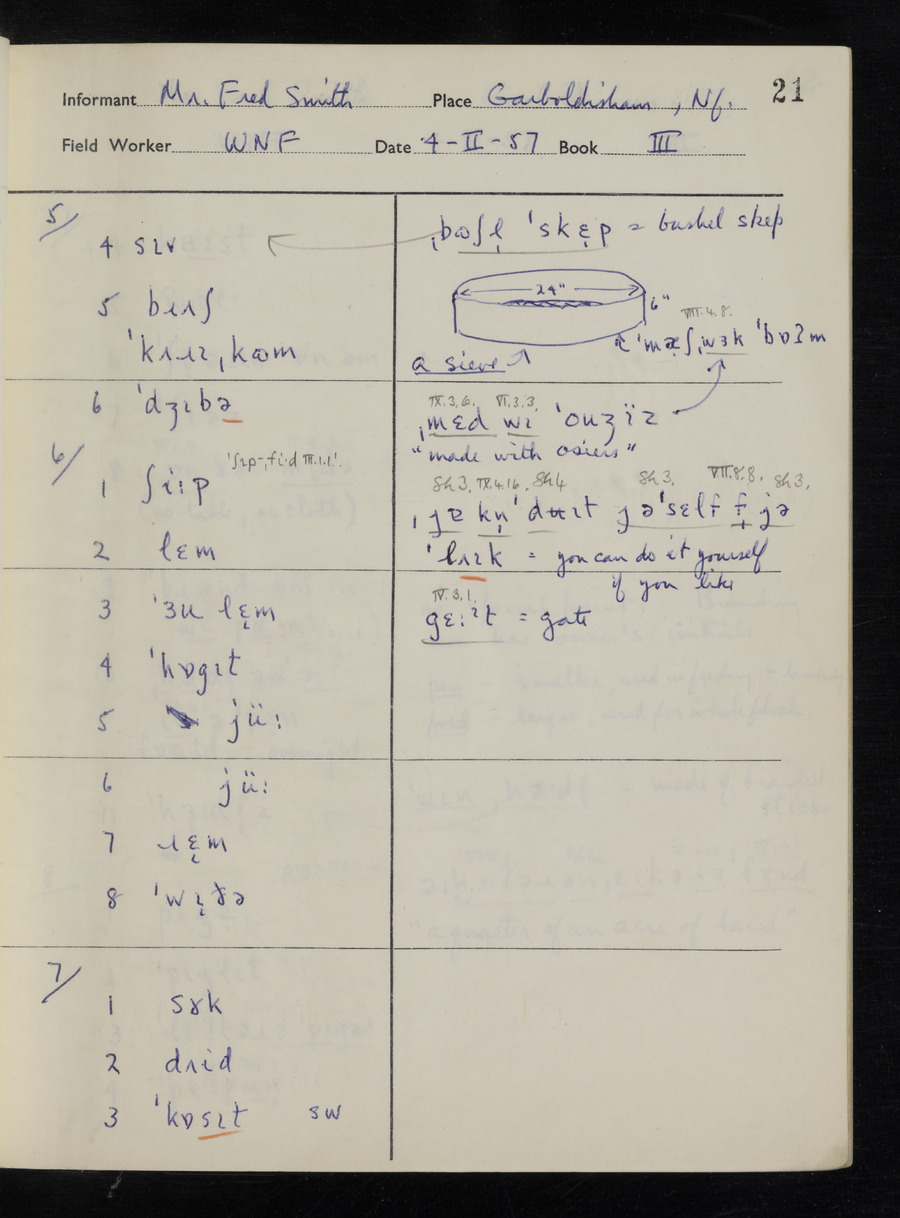 Informant Mr. Fred Smith Place Garboldisham, Nf. 21
Field Worker WNF Date 4-II-57 Book III
5/
4 sɪv
5 bɹɪʃ
ˈkɹɪɪz ˌkɷm
6 ˈdʒɪbə
6/
ˈʃɪp-ˌfiˑd III.1.1.
1 ʃiːp
2 lɛm
3 ˈɜu lɛ̣m
4 ˈhɒgɪt
5 jüː
6 jüː
7 ɹɛ̣m
8 ˈwɪ̣ðə
7/
1 sɤk
2 dɹid
3 ˈkɒsɪt sw
ˌbɷʃl̩ ˈskɛ̣p = bushel skep
24"
6"
VIII.4.8.
ˈmæ̣ʃˌwɜk ˈbɒʔm
a sieve
IX.3,6. VI.3.3,
ˌmɛd wɪ ˈouʒïz
"made with osiers"
8h3, IX.4.16, 8h4 8h3, VII.8.8, 8h3,
ˌjɐ kn̩ ˈdʉɪt jəˈself f jə
ˈlʌɪk = you can do it yourself
if you like
IV.3,1.
gɛːˀt = gate